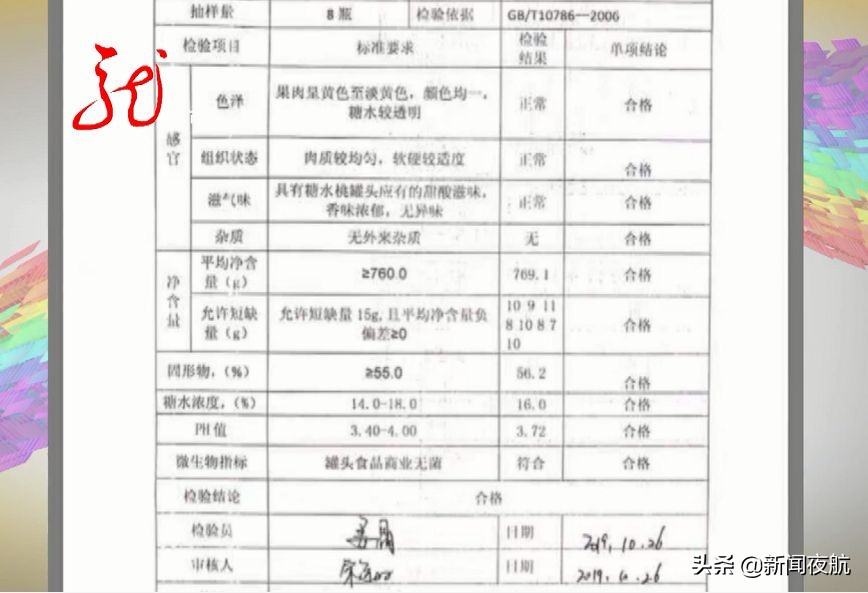 龙
抽样量 8 瓶 检验依据 GB/T10786—2006
检验项目 标准要求 检验结果 单项结论
感官 色泽 果肉呈黄色至淡黄色，颜色均一，糖水较透明 正常 合格
组织状态 肉质较均匀，软硬较适度 正常 合格
滋气味 具有糖水桃罐头应有的甜酸滋味，香味浓郁，无异味 正常 合格
杂质 无外来杂质 无 合格
净含量 平均净含量（g） ≥760.0 769.1 合格
允许短缺量（g） 允许短缺量 15g,且平均净含量负偏差≥0 10 9 11 8 10 8 7 10 合格
固形物，（%） ≥55.0 56.2 合格
糖水浓度，（%） 14.0-18.0 16.0 合格
PH 值 3.40-4.00 3.72 合格
微生物指标 罐头食品商业无菌 符合 合格
检验结论 合格
检验员 日期 2019.10.26
审核人 日期 2019.10.26
头条 @新闻夜航